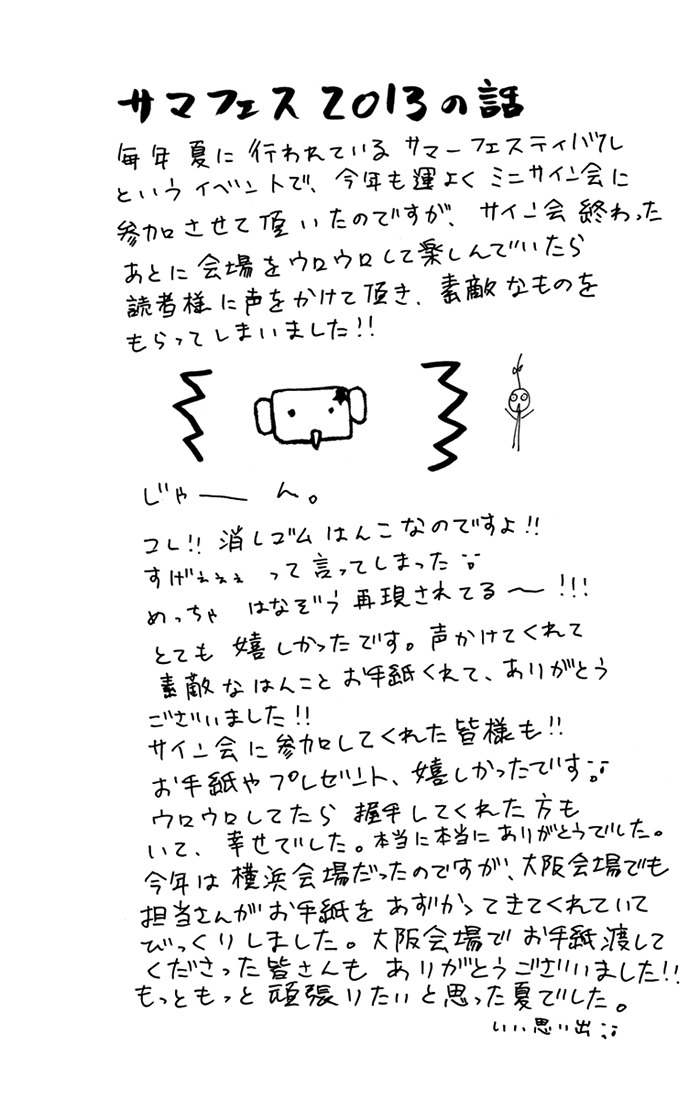 サマフェス2013の話
毎年夏に行われているサマーフェスティバル
というイベントで、今年も運よくミニサイン会に
参加させて頂いたのですが、サイン会終わった
あとに会場をウロウロして楽しんでいたら
読者様に声をかけて頂き、素敵なものを
もらってしまいました!!
じゃーん。
コレ!!消しゴムはんこなのですよ!!
すげぇぇぇって言ってしまった
めっちゃ はなぞう再現されてる〜!!!
とても嬉しかったです。声かけてくれて
素敵なはんことお手紙くれて、ありがとう
ございました!!
サイン会に参加してくれた皆様も!!
お手紙やプレゼント、嬉しかったです
ウロウロしてたら握手してくれた方も
いて、幸せでした。本当に本当にありがとうでした。
今年は横浜会場だったのですが、大阪会場でも
担当さんがお手紙をあずかってきてくれていて
びっくりしました。大阪会場でお手紙渡して
くださった皆さんもありがとうございました!!
もっともっと頑張りたいと思った夏でした。
いい思い出